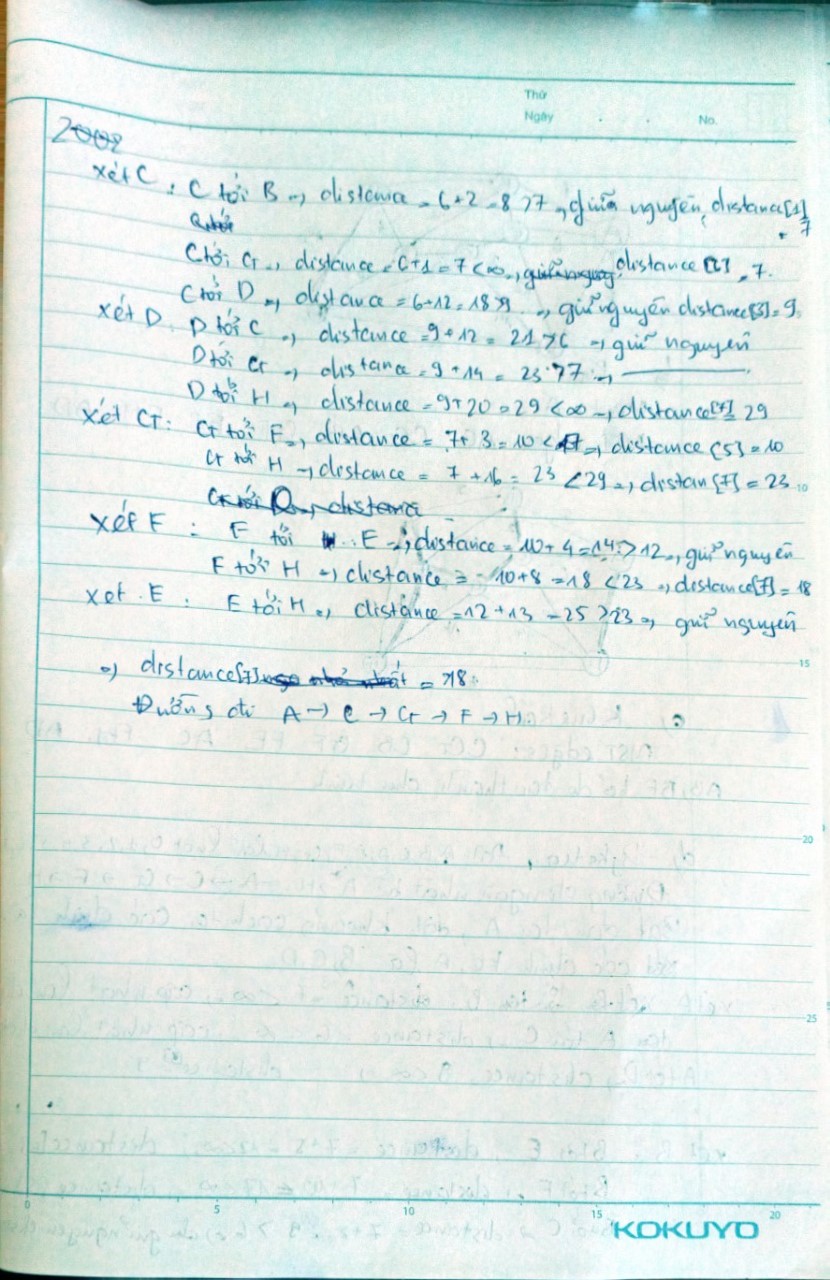 Thứ
Ngày . . No.
2008
xét C : C tới B → distance = 6+2=8 >7 → giữ nguyên, distance[1] = 7
C tới
C tới G → distance = 6+1 = 7 < ∞ → giữ nguyên distance [6] = 7.
C tới D → distance = 6+12 = 18 > 9 → giữ nguyên distance[3] = 9
xét D : D tới C → distance = 9+12 = 21 > 6 → giữ nguyên
D tới G → distance = 9+14 = 23 > 7 →
D tới H → distance = 9+20 = 29 < ∞ → distance[7] = 29
xét G : G tới F → distance = 7+3 = 10 < 17 → distance [5] = 10
G tới H → distance = 7+16 = 23 < 29 → distan[7] = 23
10
G tới D → distance
xét F : F tới E → distance = 10+4 = 14 > 12 → giữ nguyên
F tới H → distance = 10+8 = 18 < 23 → distance[7] = 18
xét E : E tới H → distance = 12+13 = 25 > 23 → giữ nguyên
15
→ distance[7] nhỏ nhất = 18
Đường đi A → C → G → F → H
20
25
0 5 10 15 20
KOKUYO